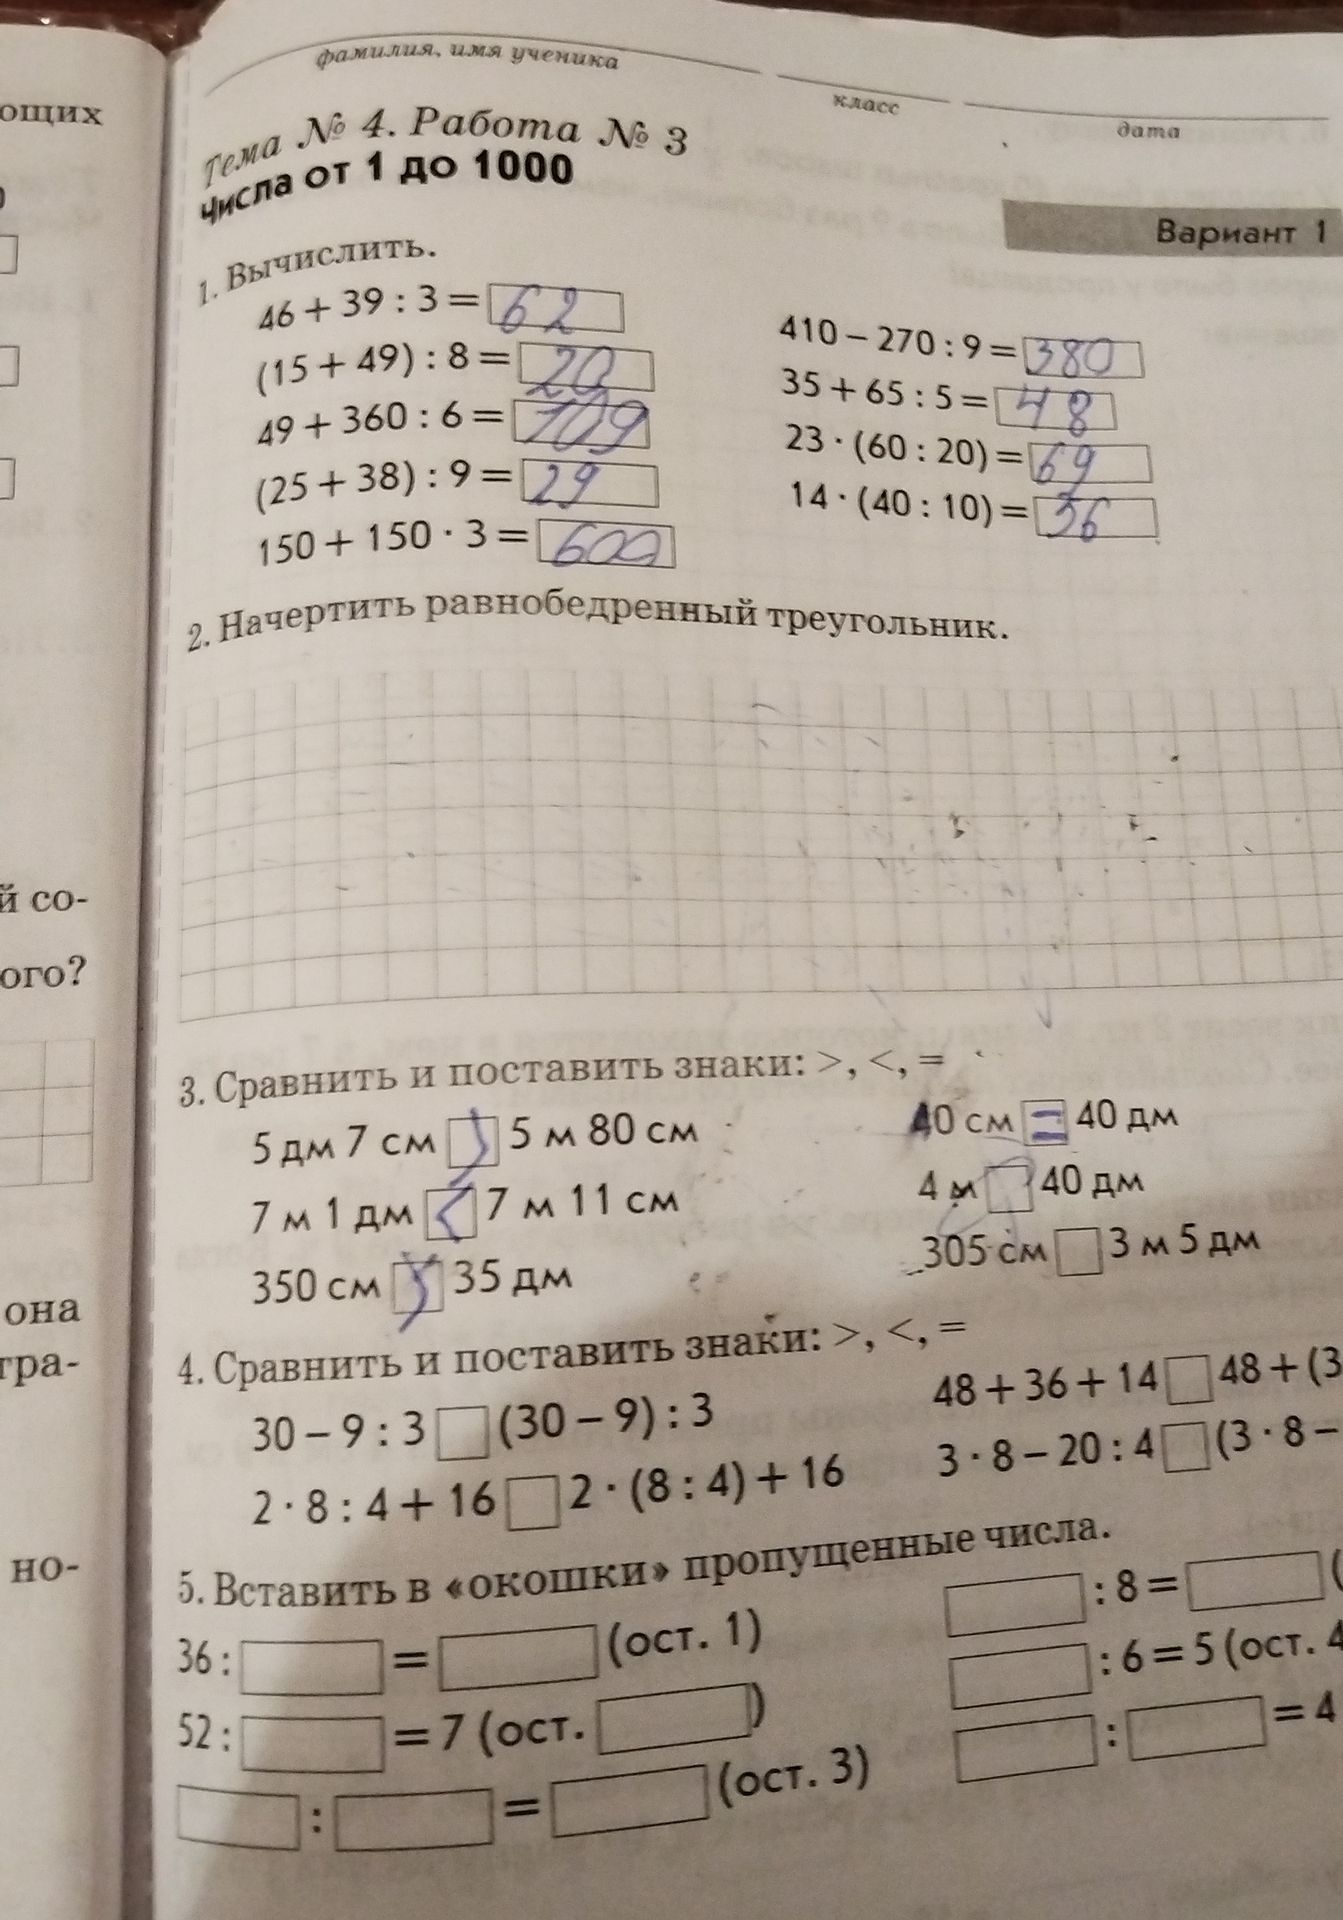 фамилия, имя ученика
класс
дата
ющих
Тема № 4. Работа № 3
Числа от 1 до 1000
Вариант 1
1. Вычислить.
46 + 39 : 3 = 62
(15 + 49) : 8 = 20
49 + 360 : 6 = 109
(25 + 38) : 9 = 29
150 + 150 · 3 = 600
410 – 270 : 9 = 380
35 + 65 : 5 = 48
23 · (60 : 20) = 69
14 · (40 : 10) = 56
2. Начертить равнобедренный треугольник.
й со-
ого?
3. Сравнить и поставить знаки: >, <, =
5 дм 7 см > 5 м 80 см
7 м 1 дм < 7 м 11 см
350 см > 35 дм
40 см = 40 дм
4 м 40 дм
305 см 3 м 5 дм
она
гра-
4. Сравнить и поставить знаки: >, <, =
30 – 9 : 3 (30 – 9) : 3
2 · 8 : 4 + 16 2 · (8 : 4) + 16
48 + 36 + 14 48 + (3
3 · 8 – 20 : 4 (3 · 8 –
но-
5. Вставить в «окошки» пропущенные числа.
36 : = (ост. 1)
52 : = 7 (ост. )
: = (ост. 3)
: 8 = (
: 6 = 5 (ост. 4
: = 4